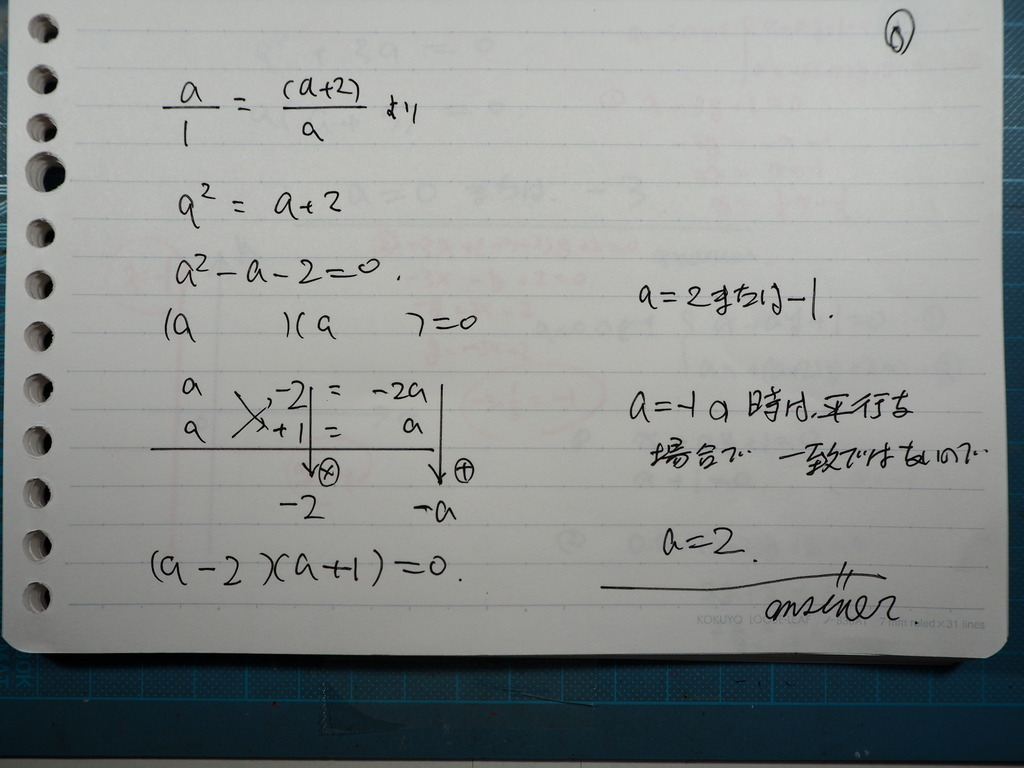 a/1 = (a+2)/a より
a² = a+2
a² - a - 2 = 0.
(a )(a ) = 0
a -2 = -2a
a +1 = a
⊗ ⊕
-2 -a
(a-2)(a+1) = 0.
a=2または-1.
a=-1の時は、平行な
場合で 一致ではないので
a=2.
answer
KOKUYO LOOSE-LEAF 7 mm ruled×31 lines